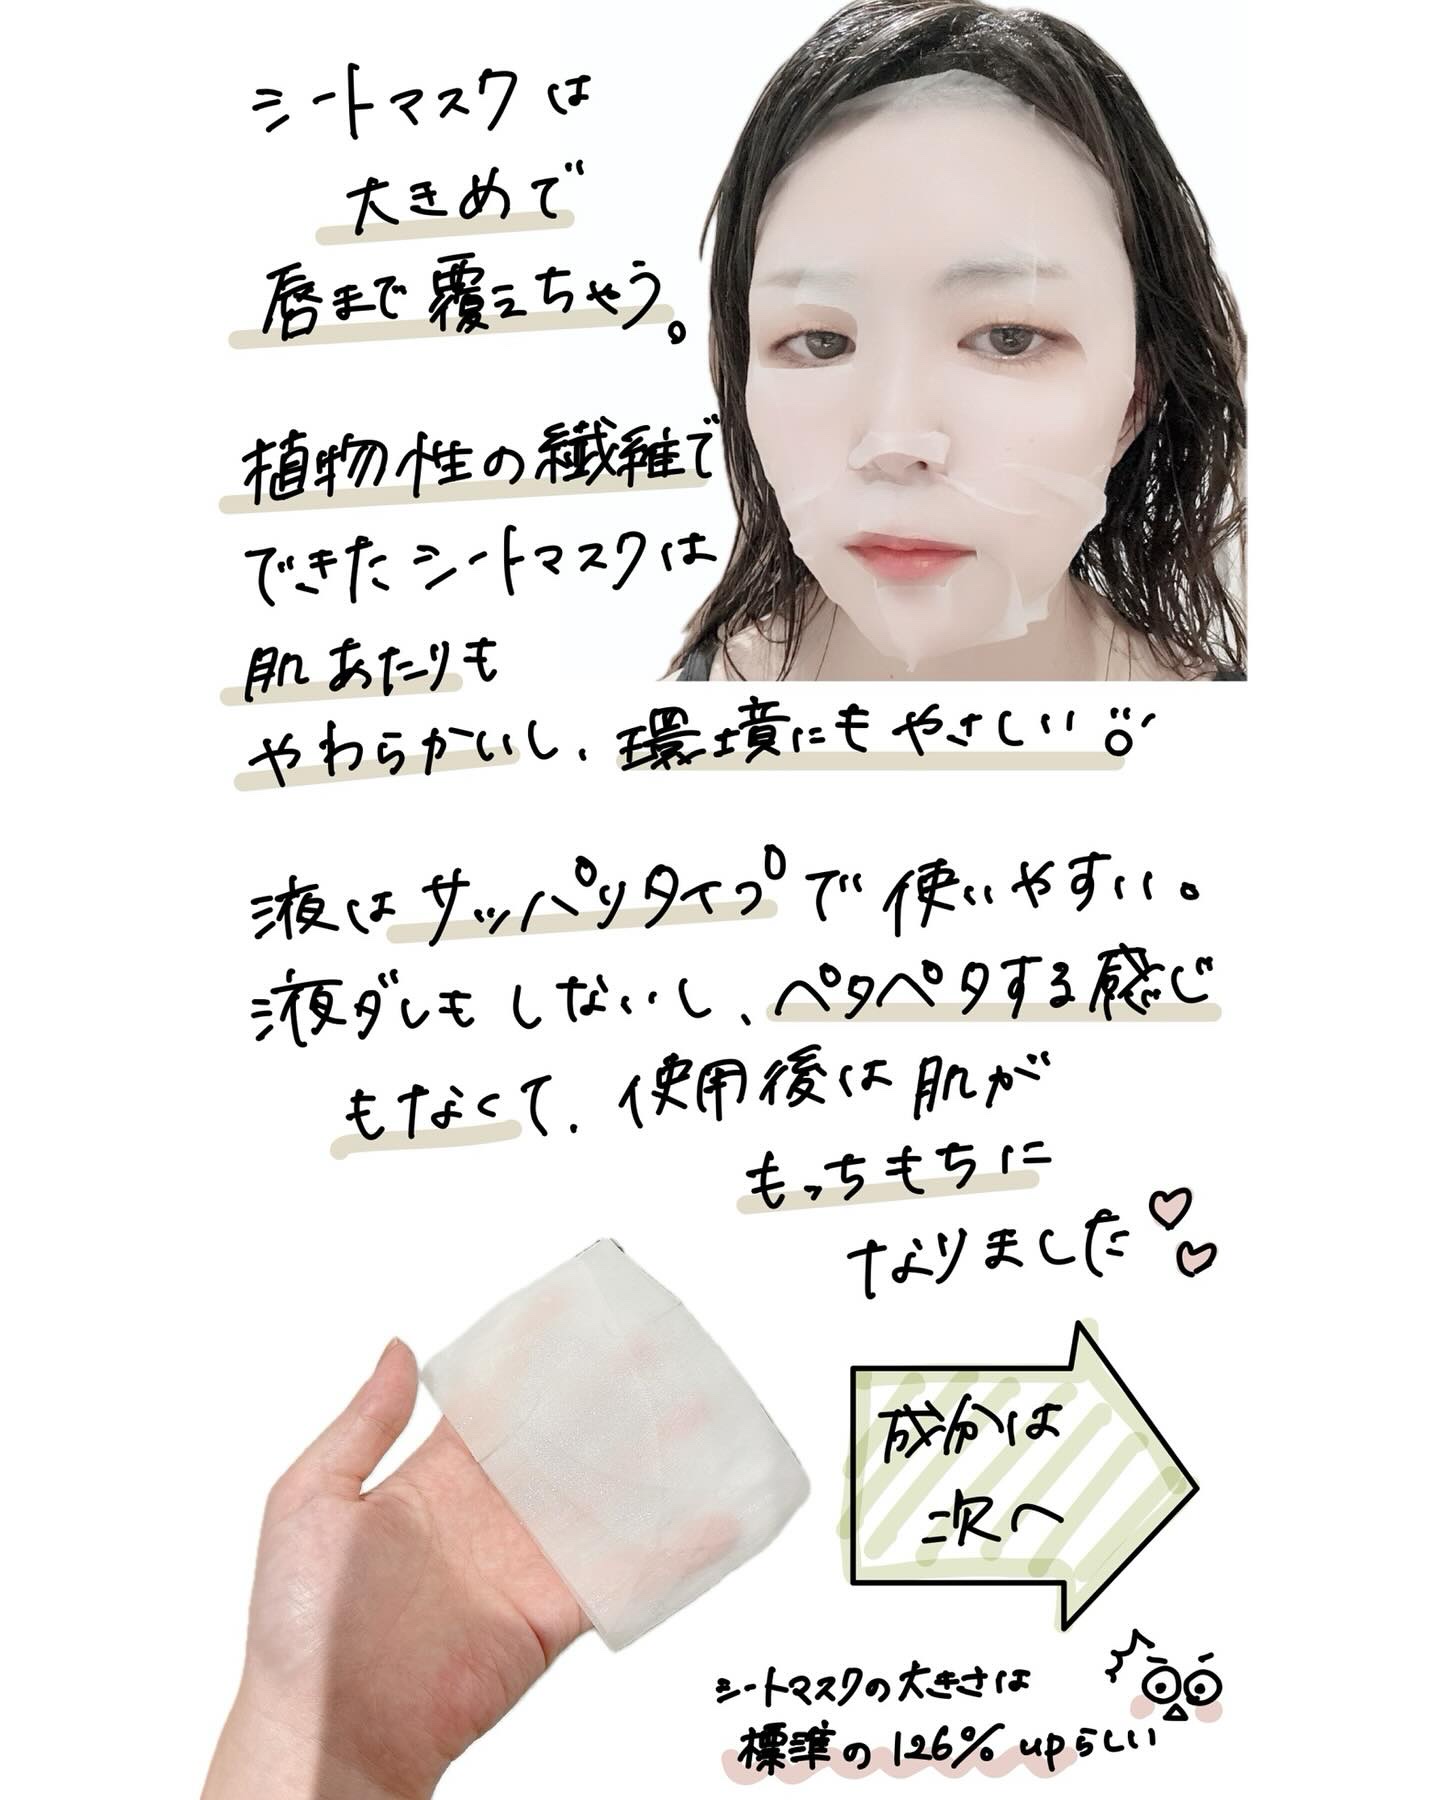 シートマスクは
大きめで
唇まで覆えちゃう。
植物性の繊維で
できたシートマスクは
肌あたりも
やわらかいし、環境にもやさしい
液はサッパリタイプで使いやすい。
液ダレもしないし、ペタペタする感じ
もなくて、使用後は肌が
もっちもちに
なりました
成分は
次へ
シートマスクの大きさは
標準の126% upらしい